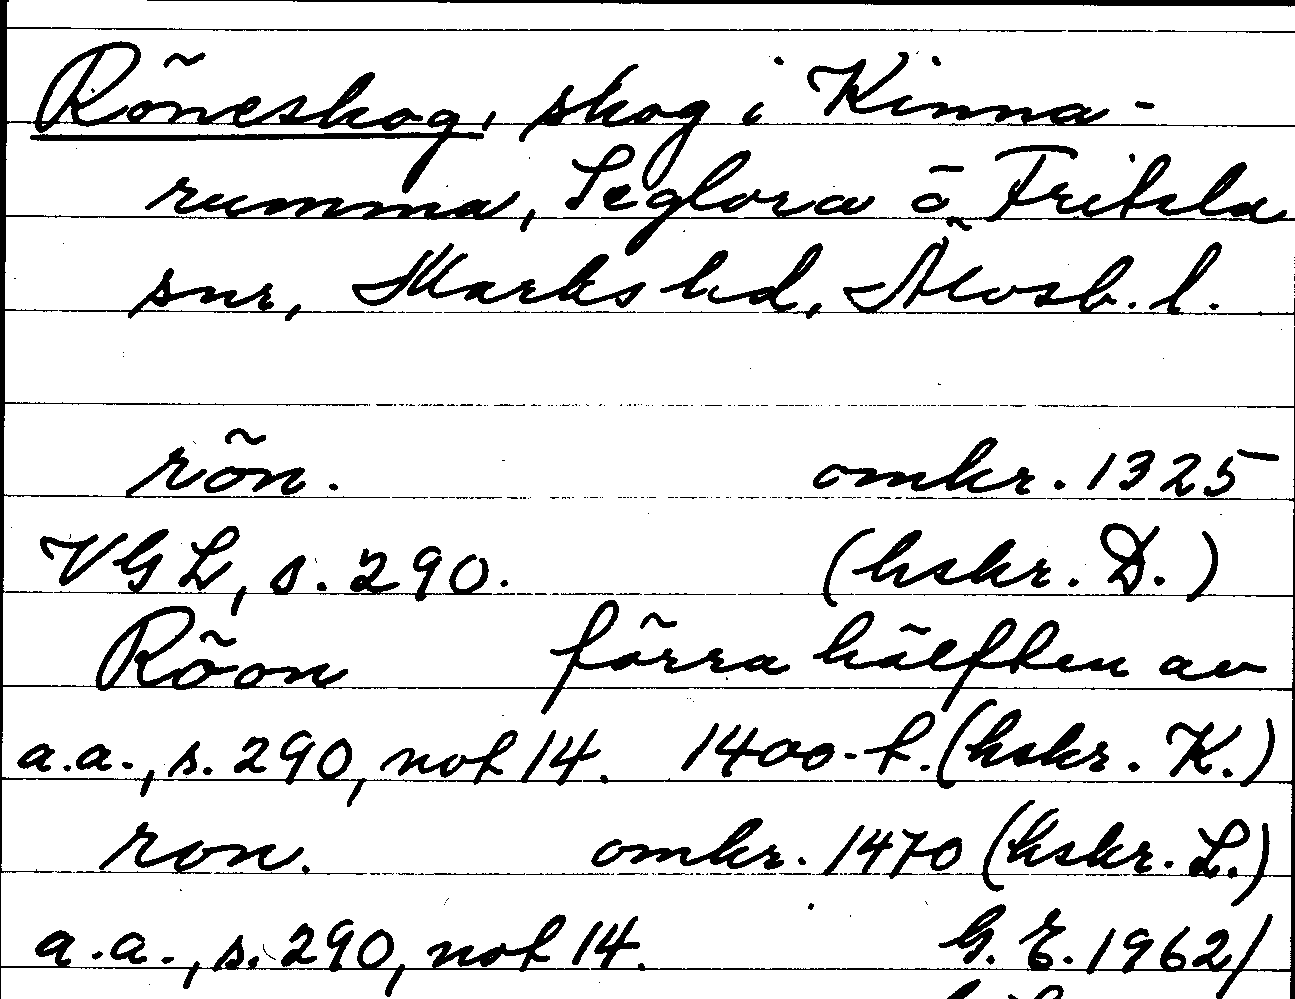 Röneskog, skog i Kinna-
rumma, Seglora o Fritsla
snr, Marks hd, Älvsb. l.
rön. omkr. 1325
VGL, s. 290. (hskr. D.)
Röon förra hälften av
a.a., s. 290, not 14. 1400-t. (hskr. K.)
ron. omkr. 1470 (hskr. L.)
a.a., s. 290, not 14. G. E. 1962/